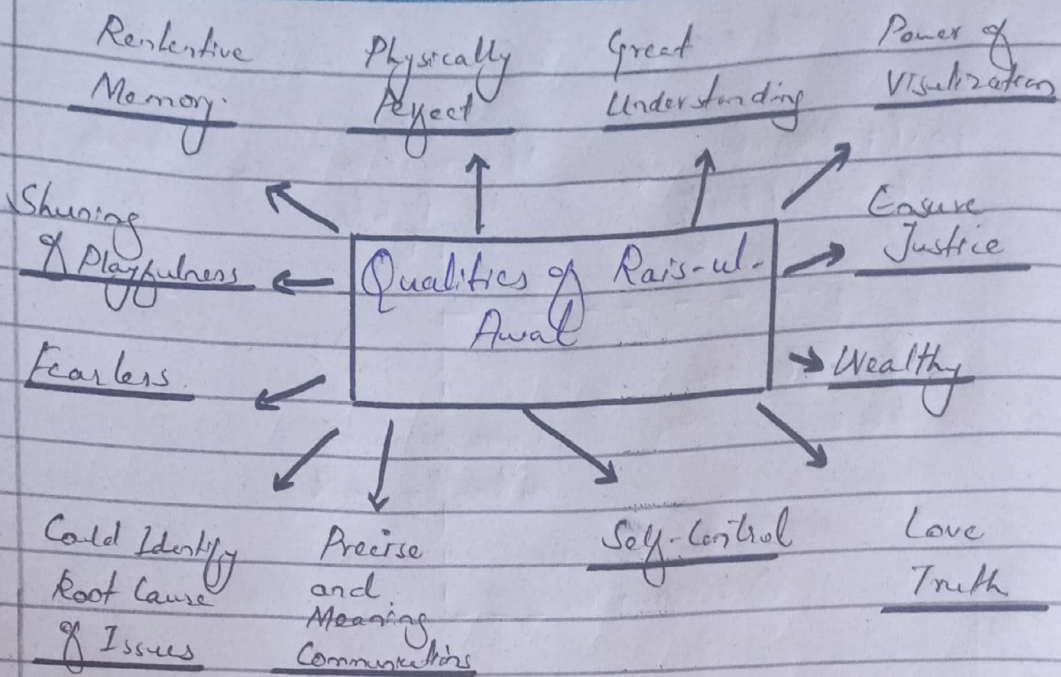 Rentenive
Memory.
Physically
Perfect
Great
Understanding
Power of
Visulization
Shuning
of Playfulness
Qualities of Rais-ul-
Awal
Ensure
Justice
Fearless
Wealthy
Could Identify
Root Cause
of Issues
Precise
and
Meaning
Communications
Self-Control
Love
Truth